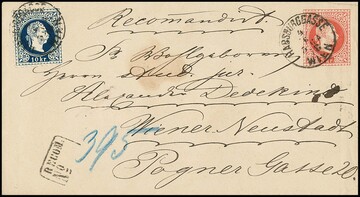 10 kr.
HABSBURGGASSE
WIEN
Recomandirt.
Sr Wohlgeboren
Herrn stud. jur.
Alexander Dedekind
Wiener Neustadt
Pogner Gasse 20.
RECOM.
No
395